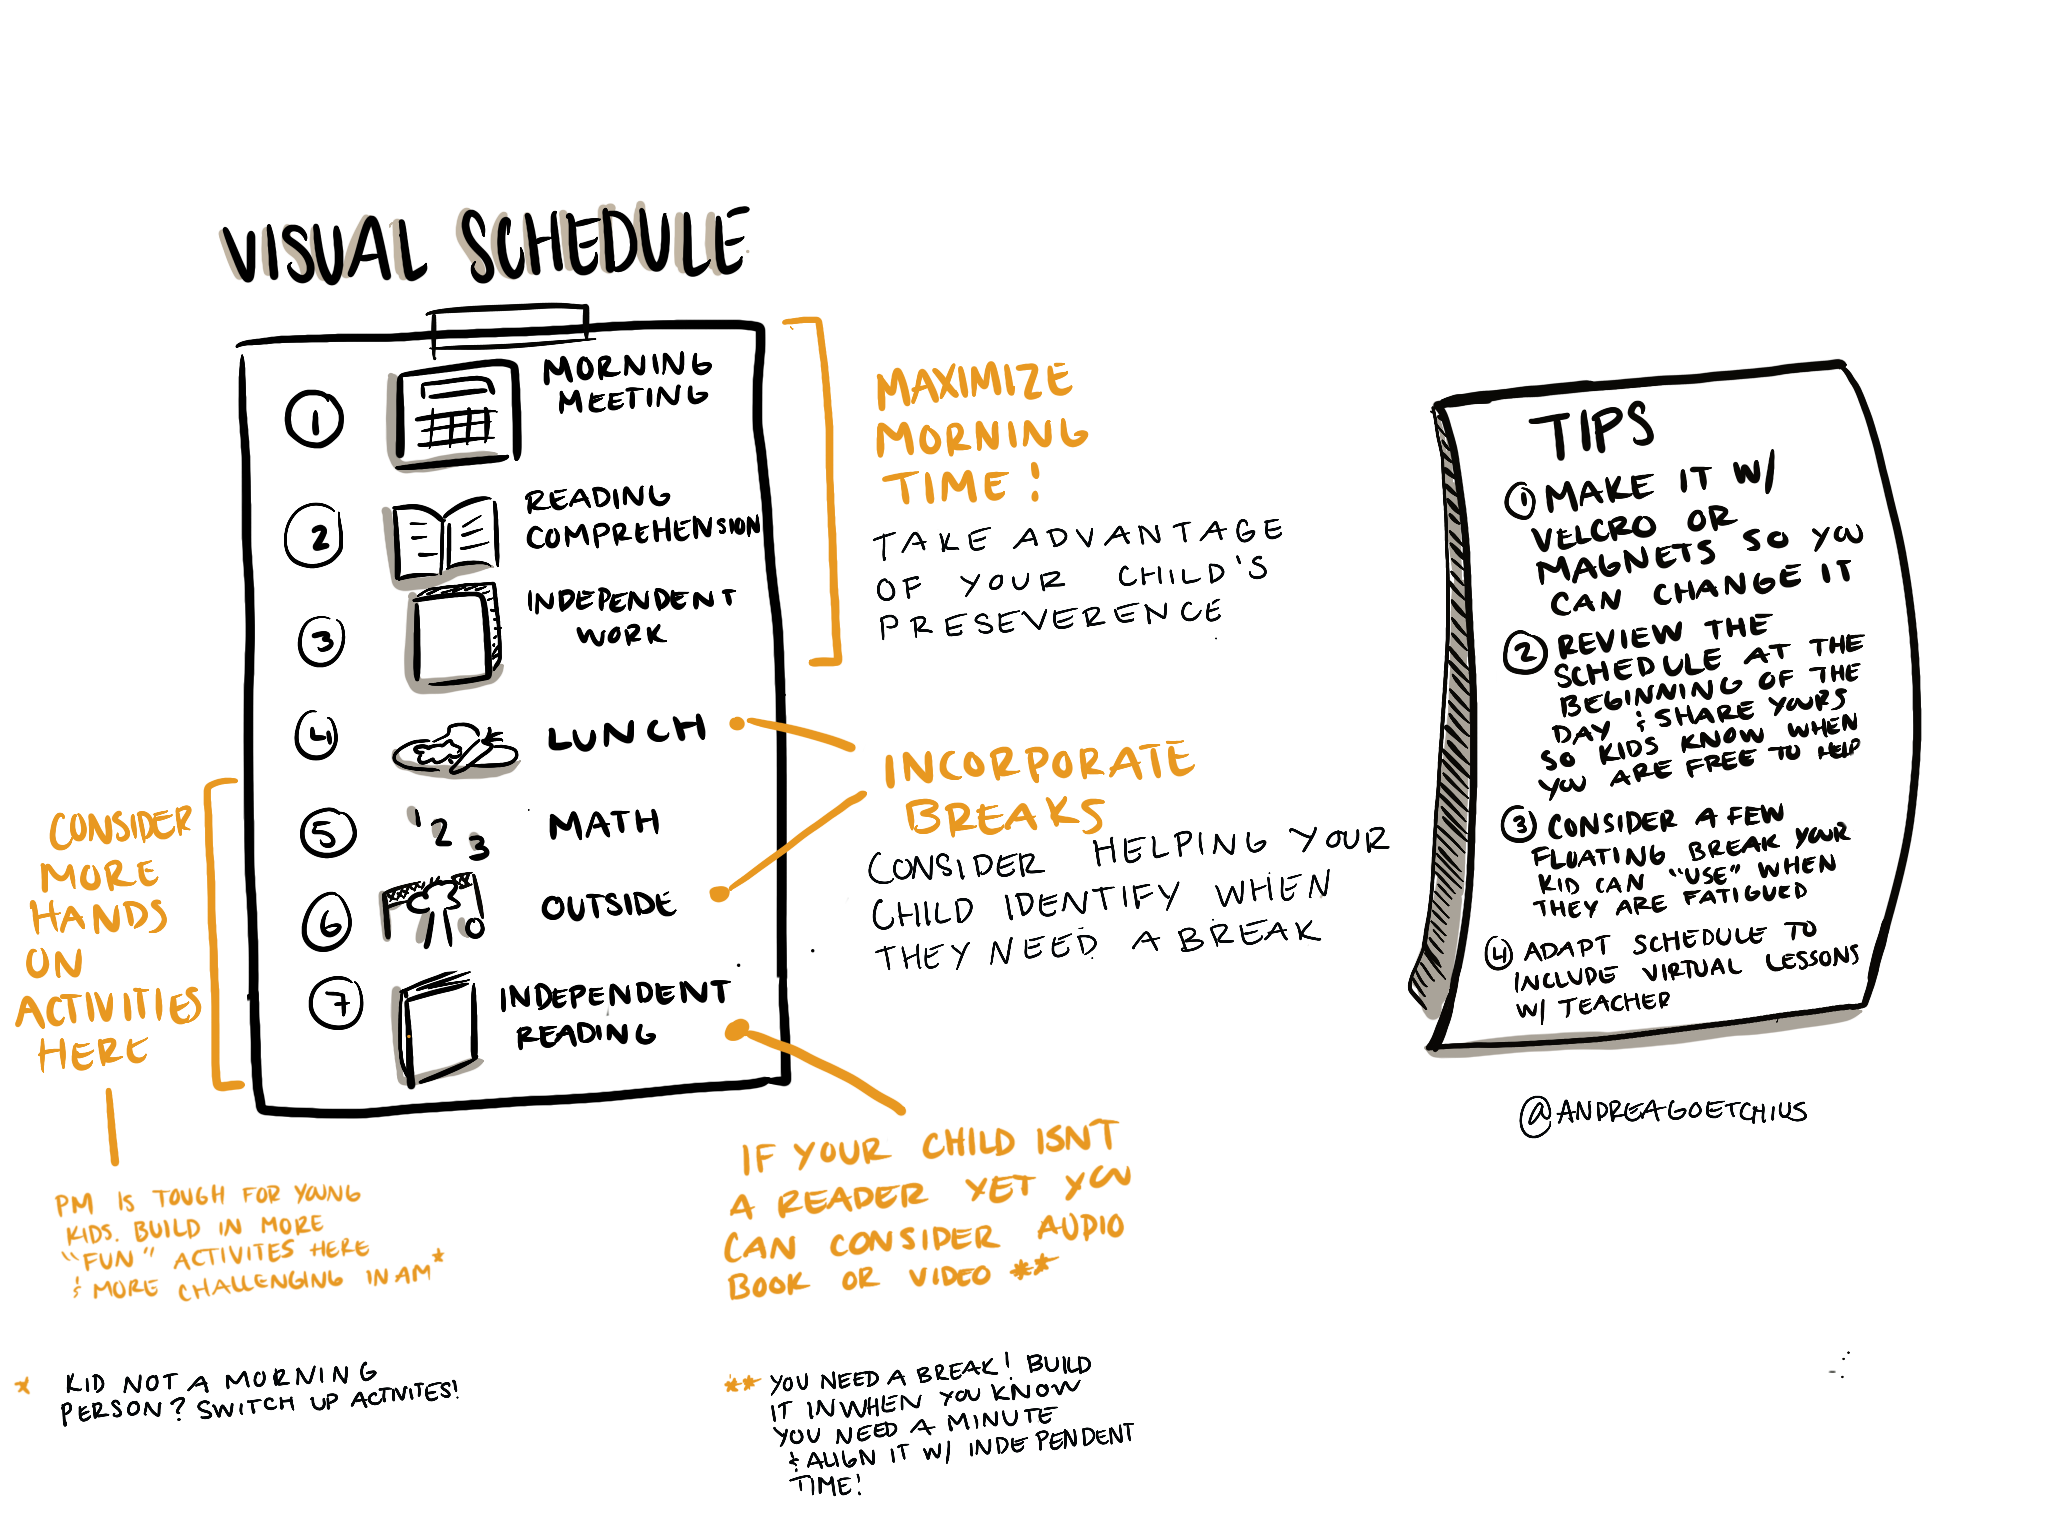 VISUAL SCHEDULE
1
MORNING
MEETING
2
READING
COMPREHENSION
3
INDEPENDENT
WORK
4
LUNCH
5
1 2 3
MATH
6
OUTSIDE
7
INDEPENDENT
READING
MAXIMIZE
MORNING
TIME!
TAKE ADVANTAGE
OF YOUR CHILD'S
PRESEVERENCE
INCORPORATE
BREAKS
CONSIDER HELPING YOUR
CHILD IDENTIFY WHEN
THEY NEED A BREAK
CONSIDER
MORE
HANDS
ON
ACTIVITIES
HERE
PM IS TOUGH FOR YOUNG
KIDS. BUILD IN MORE
"FUN" ACTIVITES HERE
& MORE CHALLENGING IN AM*
* KID NOT A MORNING
PERSON? SWITCH UP ACTIVITES!
IF YOUR CHILD ISN'T
A READER YET YOU
CAN CONSIDER AUDIO
BOOK OR VIDEO **
** YOU NEED A BREAK! BUILD
IT IN WHEN YOU KNOW
YOU NEED A MINUTE
& ALIGN IT W/ INDEPENDENT
TIME!
TIPS
1 MAKE IT W/
VELCRO OR
MAGNETS SO YOU
CAN CHANGE IT
2 REVIEW THE
SCHEDULE AT THE
BEGINNING OF THE
DAY & SHARE YOURS
SO KIDS KNOW WHEN
YOU ARE FREE TO HELP
3 CONSIDER A FEW
FLOATING BREAK YOUR
KID CAN "USE" WHEN
THEY ARE FATIGUED
4 ADAPT SCHEDULE TO
INCLUDE VIRTUAL LESSONS
W/ TEACHER
@ANDREAGOETCHIUS